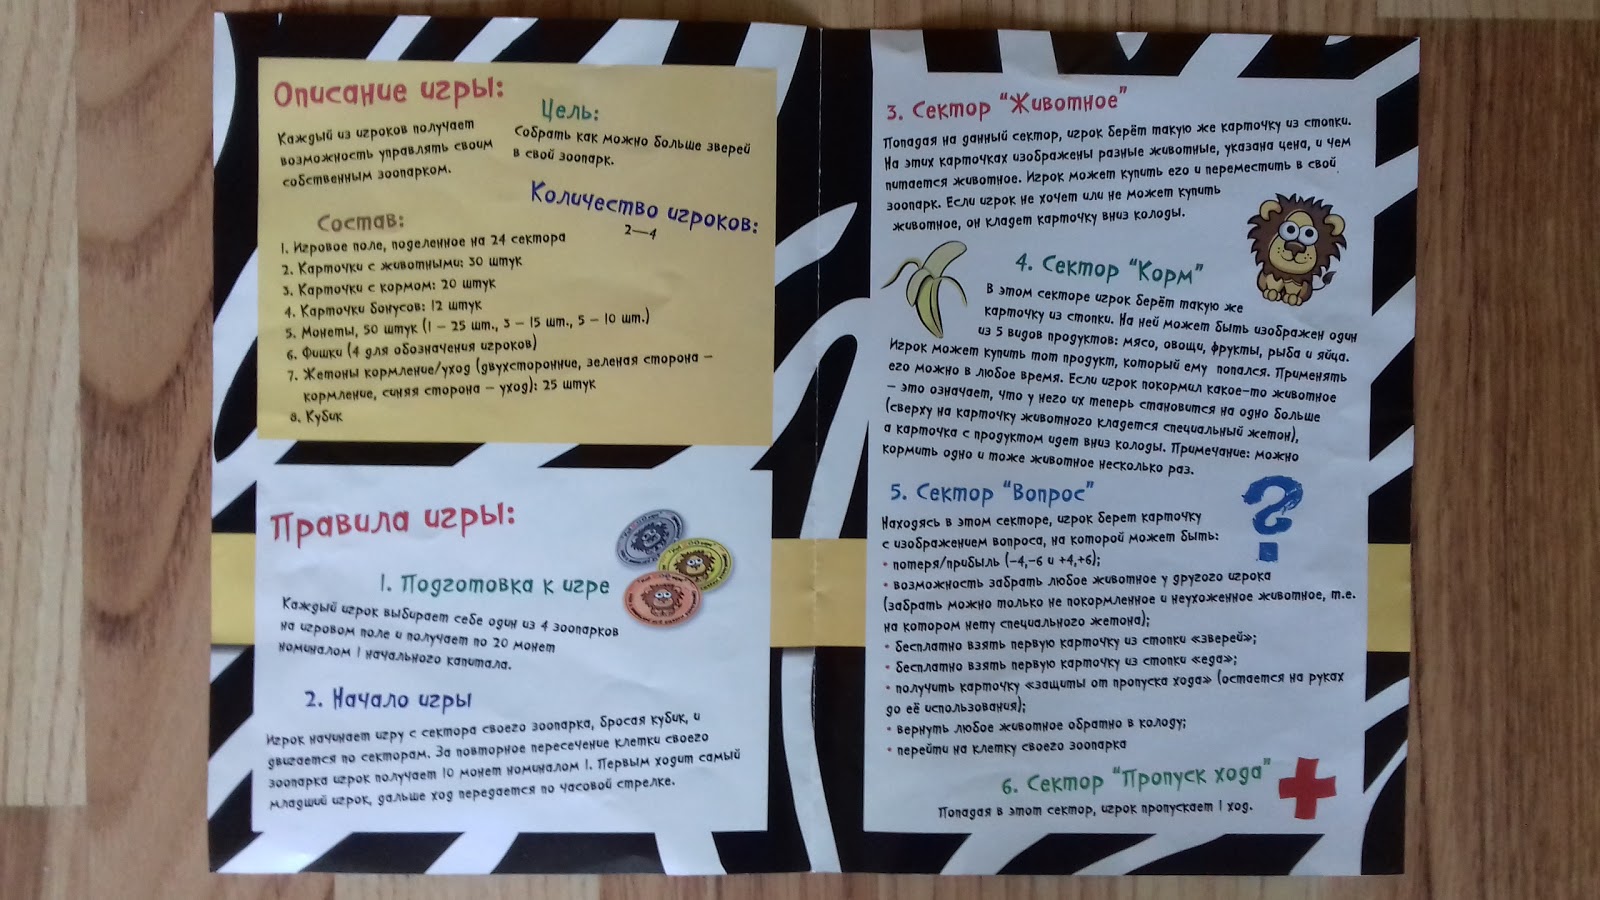 Описание игры:
Каждый из игроков получает
возможность управлять своим
собственным зоопарком.
Цель:
Собрать как можно больше зверей
в свой зоопарк.
Количество игроков:
2—4
Состав:
1. Игровое поле, поделенное на 24 сектора
2. Карточки с животными: 30 штук
3. Карточки с кормом: 20 штук
4. Карточки бонусов: 12 штук
5. Монеты, 50 штук (1 – 25 шт., 3 – 15 шт., 5 – 10 шт.)
6. Фишки (4 для обозначения игроков)
7. Жетоны кормление/уход (двухсторонние, зеленая сторона –
кормление, синяя сторона – уход): 25 штук
8. Кубик
Правила игры:
1. Подготовка к игре
Каждый игрок выбирает себе один из 4 зоопарков
на игровом поле и получает по 20 монет
номиналом 1 начального капитала.
2. Начало игры
Игрок начинает игру с сектора своего зоопарка, бросая кубик, и
двигается по секторам. За повторное пересечение клетки своего
зоопарка игрок получает 10 монет номиналом 1. Первым ходит самый
младший игрок, дальше ход передается по часовой стрелке.
3. Сектор "Животное"
Попадая на данный сектор, игрок берёт такую же карточку из стопки.
На этих карточках изображены разные животные, указана цена, и чем
питается животное. Игрок может купить его и переместить в свой
зоопарк. Если игрок не хочет или не может купить
животное, он кладет карточку вниз колоды.
4. Сектор "Корм"
В этом секторе игрок берёт такую же
карточку из стопки. На ней может быть изображен один
из 5 видов продуктов: мясо, овощи, фрукты, рыба и яйца.
Игрок может купить тот продукт, который ему попался. Применять
его можно в любое время. Если игрок покормил какое-то животное
– это означает, что у него их теперь становится на одно больше
(сверху на карточку животного кладется специальный жетон),
а карточка с продуктом идет вниз колоды. Примечание: можно
кормить одно и тоже животное несколько раз.
5. Сектор "Вопрос"
Находясь в этом секторе, игрок берет карточку
с изображением вопроса, на которой может быть:
• потеря/прибыль (-4,-6 и +4,+6);
• возможность забрать любое животное у другого игрока
(забрать можно только не покормленное и неухоженное животное, т.е.
на котором нету специального жетона);
• бесплатно взять первую карточку из стопки «зверей»;
• бесплатно взять первую карточку из стопки «еда»;
• получить карточку «защиты от пропуска хода» (остается на руках
до её использования);
• вернуть любое животное обратно в колоду;
• перейти на клетку своего зоопарка
6. Сектор "Пропуск хода"
Попадая в этот сектор, игрок пропускает 1 ход.